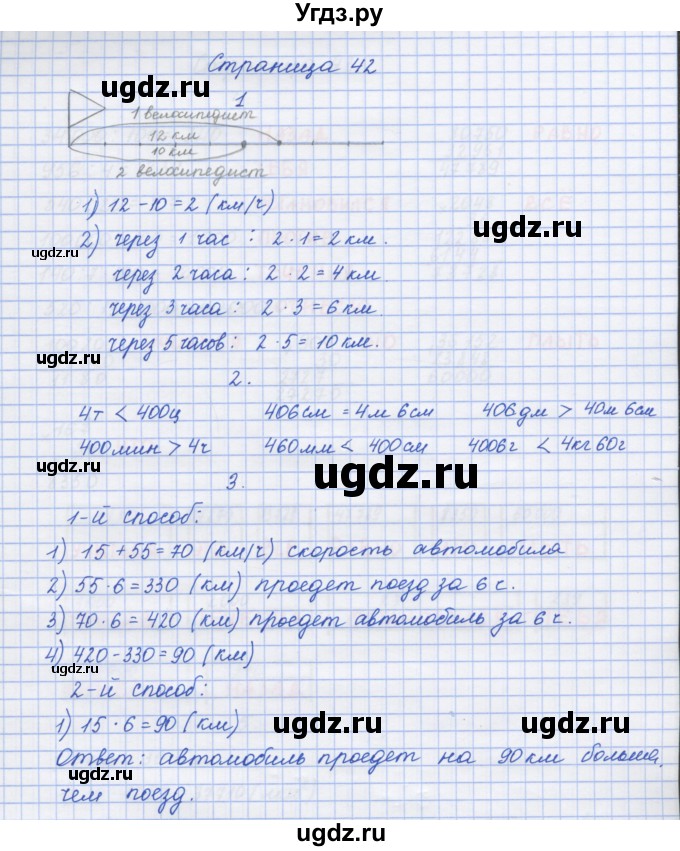 Угдз.ру
Страница 42
1
1 велосипедист
12 км
10 км
2 велосипедист
1) 12 - 10 = 2 (км/ч)
2) через 1 час : 2 · 1 = 2 км.
через 2 часа : 2 · 2 = 4 км.
через 3 часа : 2 · 3 = 6 км.
через 5 часов : 2 · 5 = 10 км.
2.
4т < 400ц 406см = 4м 6см 406дм > 40м 6см
400мин > 4ч 460мм < 400см 4006г < 4кг 60г
3.
1-й способ:
1) 15 + 55 = 70 (км/ч) скорость автомобила
2) 55 · 6 = 330 (км) проедет поезд за 6 с.
3) 70 · 6 = 420 (км) проедет автомобиль за 6 с.
4) 420 - 330 = 90 (км)
2-й способ:
1) 15 · 6 = 90 (км)
Ответ: автомобиль проедет на 90 км больше,
чем поезд.
ugdz.ru
ugdz.ru
ugdz.ru
ugdz.ru
ugdz.ru
ugdz.ru
ugdz.ru
ugdz.ru
ugdz.ru
ugdz.ru
ugdz.ru
ugdz.ru
ugdz.ru